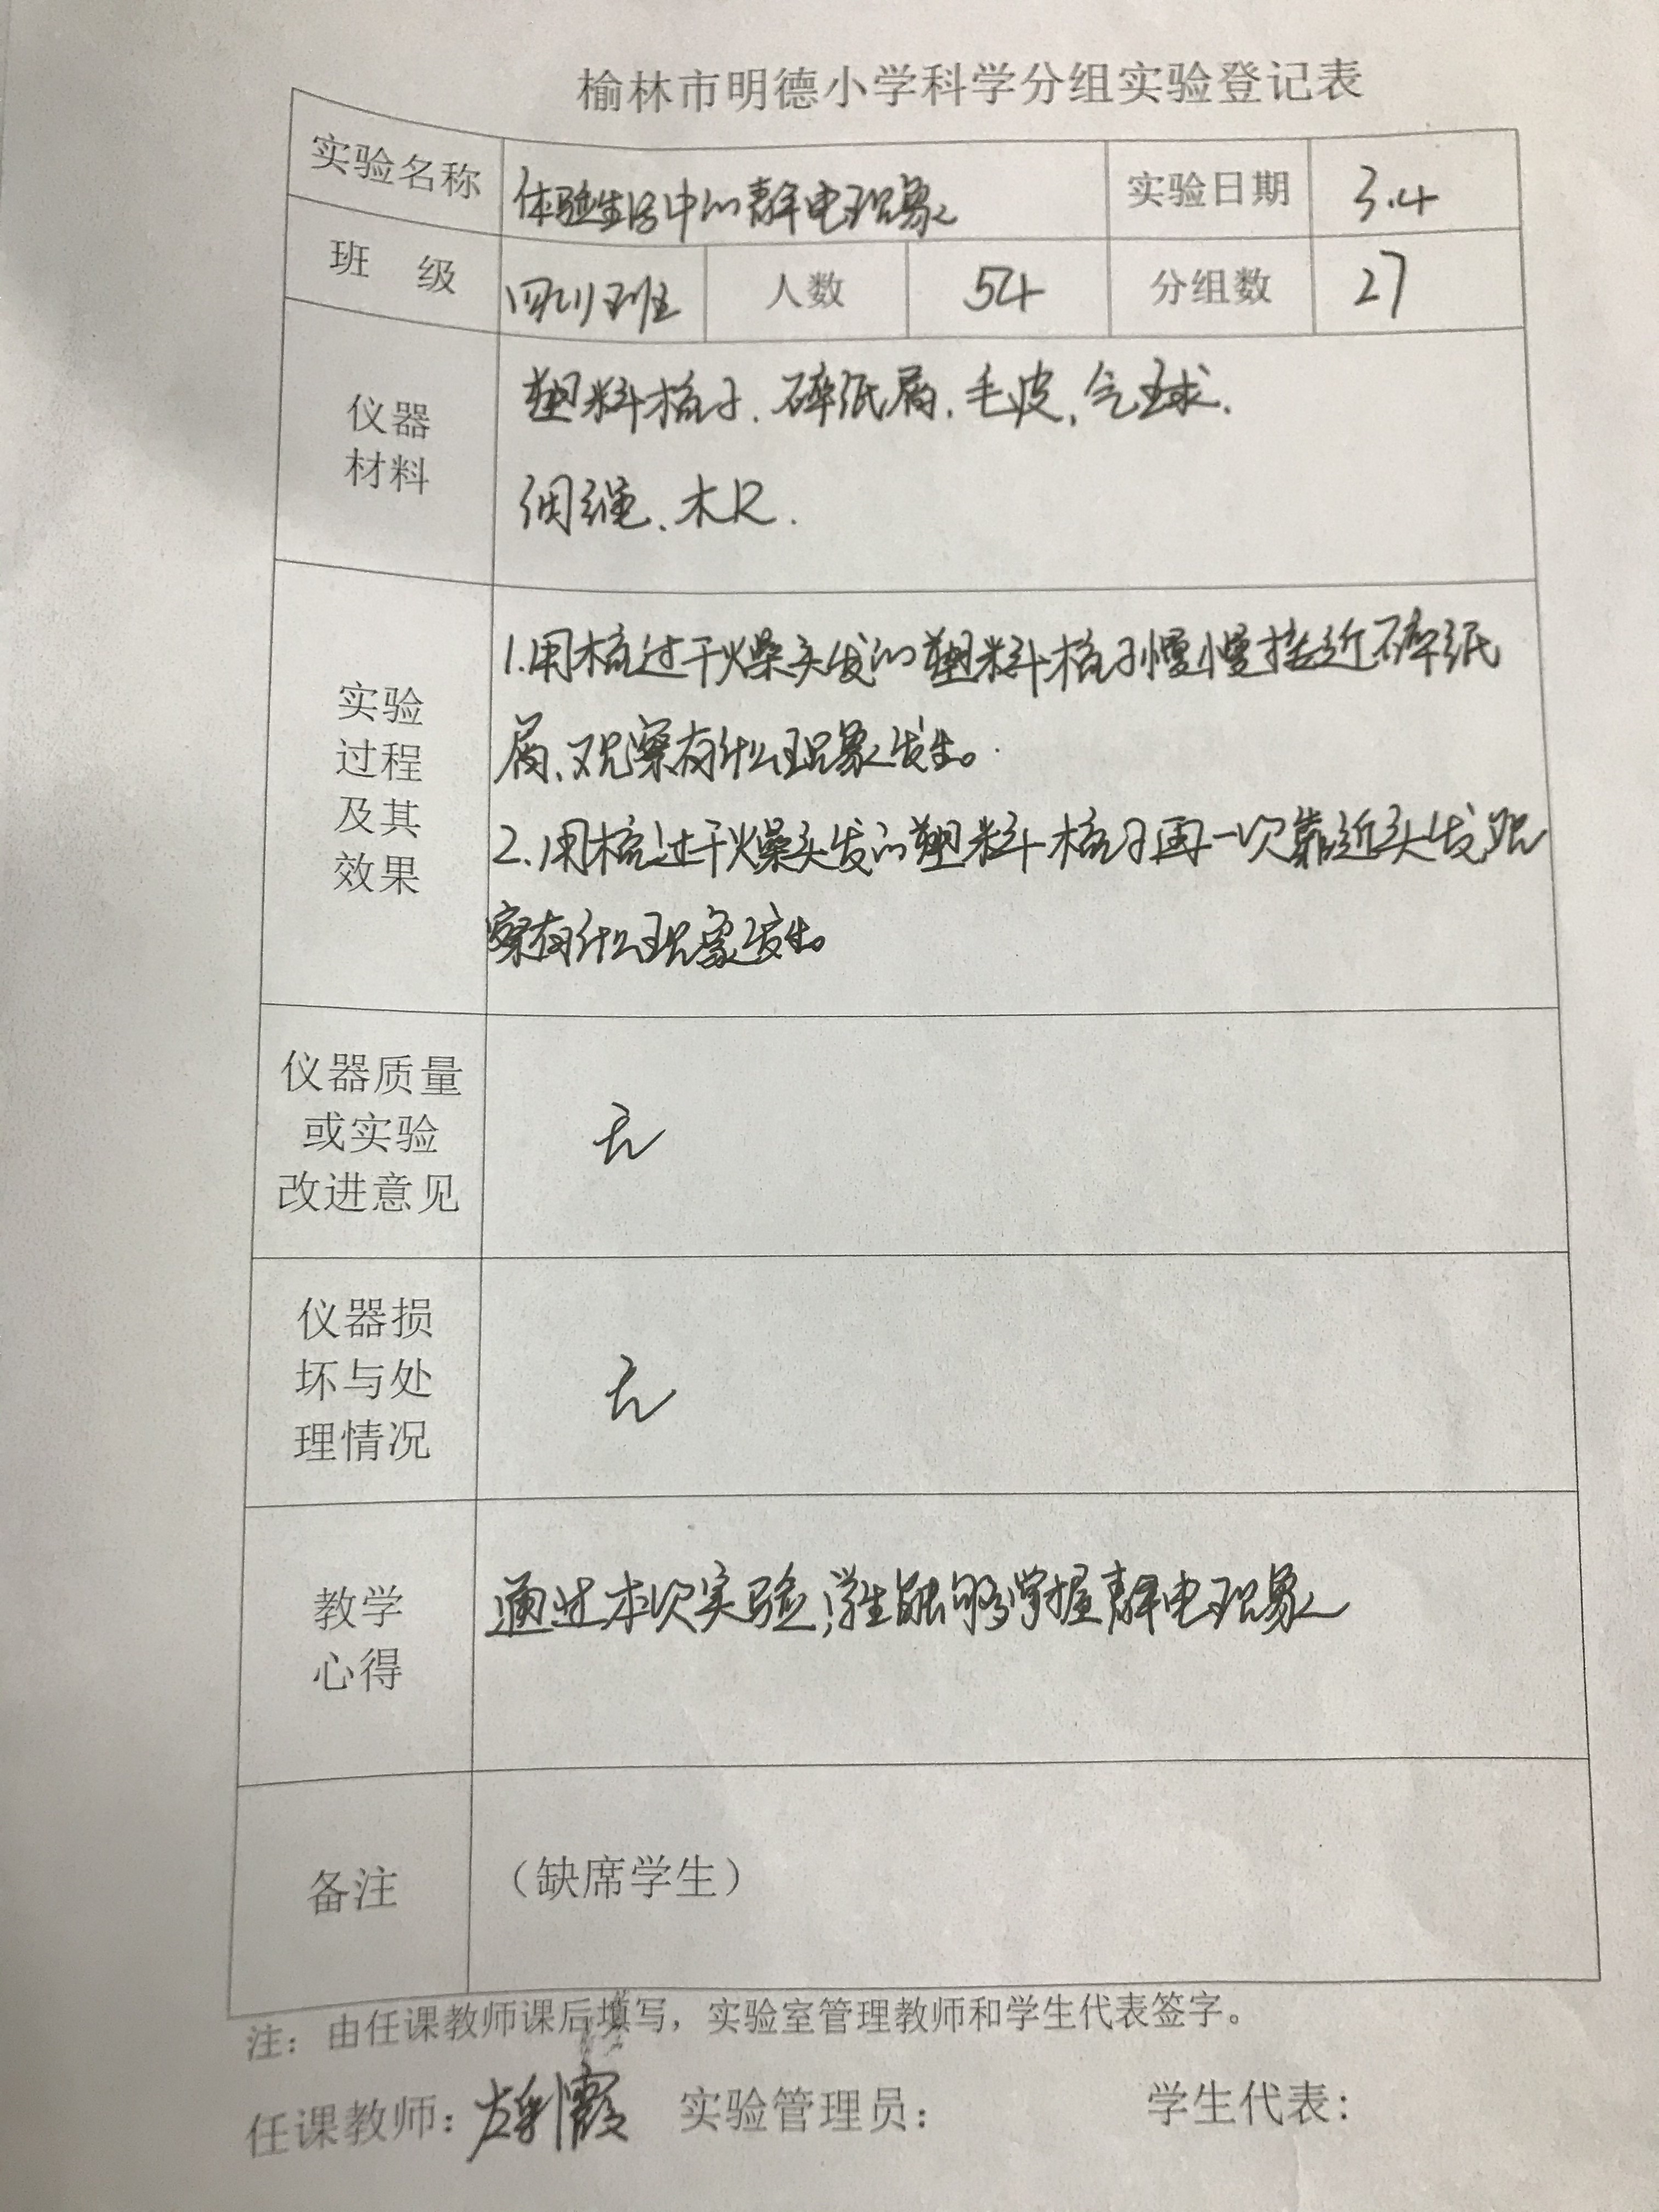 榆林市明德小学科学分组实验登记表
实验名称 体验生活中的静电现象 实验日期 3.4
班 级 四(1)班 人数 54 分组数 27
仪器
材料
塑料梳子、碎纸屑、毛皮、气球、
细绳、木尺.
实验
过程
及其
效果
1.用梳过干燥头发的塑料梳子慢慢接近碎纸
屑、观察有什么现象发生。
2.用梳过干燥头发的塑料梳子再一次靠近头发观
察有什么现象发生。
仪器质量
或实验
改进意见
无
仪器损
坏与处
理情况
无
教学
心得
通过本次实验,学生能够掌握静电现象
备注
（缺席学生）
注：由任课教师课后填写，实验室管理教师和学生代表签字。
任课教师： 实验管理员： 学生代表：